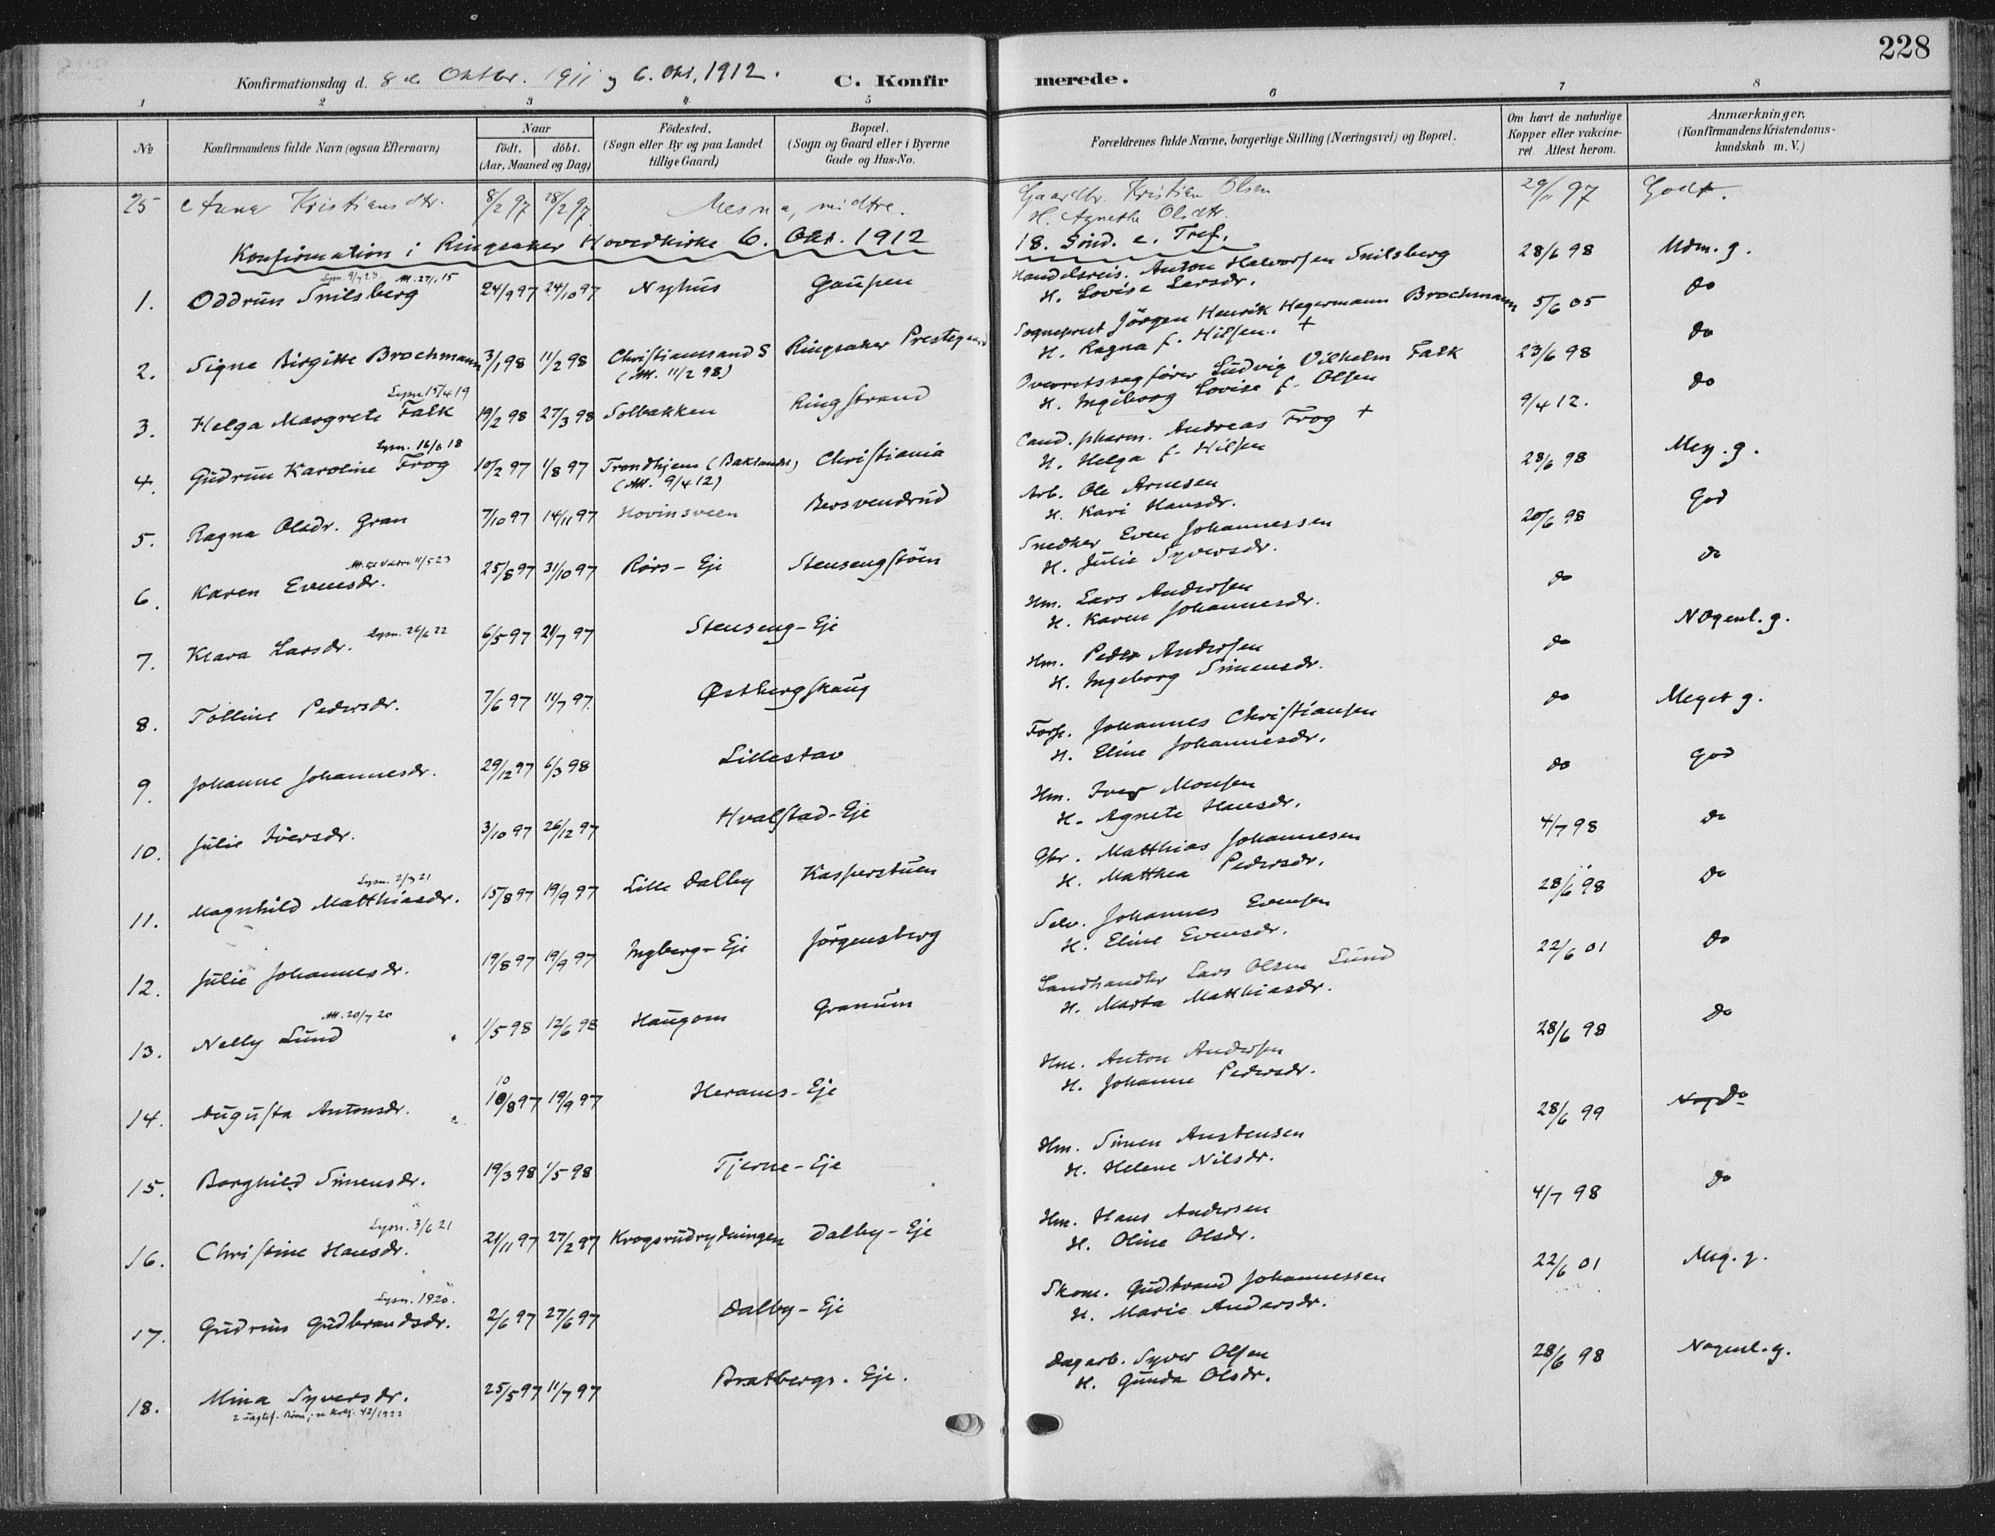 228
Konfirmationsdag d. 8de Oktbr. 1911 og 6. Okt. 1912.
C. Konfirmerede.
1 2 3 4 5 6 7 8
No
Konfirmandens fulde Navn (ogsaa Efternavn)
Naar födt. döbt. (Aar, Maaned og Dag)
Födested. (Sogn eller By og paa Landet tillige Gaard)
Bopæl. (Sogn og Gaard eller i Byerne Gade og Hus-No.
Forældrenes fulde Navne, borgerlige Stilling (Næringsvei) og Bopæl.
Om havt de naturlige Kopper eller vakcineret. Attest herom.
Anmærkninger. (Konfirmandens Kristendomskundskab m. V.)
25 Anna Kristiansdtr. 8/2 97 28/2 97 Mesna, midtre. Gaardbr. Kristian Olsen 29/11 97 Godt.
H. Agnethe Olsdtr.
Konfirmation i Ringsaker Hovedkirke 6. Okt. 1912 18. Sønd. e. Tref.
Att. 27/1 15
1. Oddrun Snilsberg 24/9 97 24/10 97 Nyhus Gaupen Handelsreis. Anton Halvorsen Snilsberg 28/6 98 Udm. g.
H. Lovise Larsdr.
2. Signe Birgitte Brochmann 3/1 98 11/2 98 Christianssand S Ringsaker Prestegaard Sogneprest Jörgen Henrik Hagermann Brochmann 5/6 05 do
(Att. 11/2 98) H. Ragna f. Nilsen. +
Lysn 15/4 19
3. Helga Margrete Falk 19/2 98 27/3 98 Solbakken Ringstrand Overretssagförer Ludvig Vilhelm Falk 23/6 98 do
H. Ingeborg Lovise f. Olsen
Lysn. 16/6 18
4. Gudrun Karoline Frog 10/2 97 1/8 97 Trondhjem (Baklandet) Christiania Cand. pharm. Andreas Frog + 9/4 12. do
(Att. 9/4 12) H. Helga f. Nilsen
5. Ragna Olsdr. Gran 7/10 97 14/11 97 Hovinsveen Bersvendrud Arb. Ole Arnesen 28/6 98 Meg. g.
H. Kari Hansdr.
6. Karen Evensdr. 25/8 97 31/10 97 Rörs-Eje Stensengstöen Snedker Even Johannessen 20/6 98 God
H. Julie Syversdr.
Lysn. 26/6 22
7. Klara Larsdr. 6/5 97 21/7 97 Stenseng-Eje Hm. Lars Andersen do do
H. Karen Johannesdr.
8. Tolline Pedersdr. 7/6 97 11/7 97. Østbergskaug Hm. Peder Andersen do NOgenl. g.
H. Ingeborg Simensdr.
9. Johanne Johannesdr. 29/12 97 6/3 98 Lillestav Forp. Johannes Christiansen do Meget g.
H. Eline Johannesdr.
10. Julie Iversdr. 3/10 97 26/12 97 Hvalstad-Eje Hm. Iver Monsen do God
H. Agnete Hansdr.
Lysn. 2/3 21
11. Magnhild Matthiasdr. 15/8 97 19/9 97 Lille Dalby Kasperstuen Gbr. Matthias Johannesen 4/7 98 do
H. Matthea Pedersdr.
12. Julie Johannesdr. 19/8 97 19/9 97 Ingberg-Eje Jörgensberg Selv. Johannes Evensen 28/6 98 do
H. Eline Evensdr.
Att. 20/7 20
13. Nelly Lund 1/5 98 12/6 98 Haugom Granum Landhandler Lars Olsen Lund 22/6 01 do
H. Marta Matthiasdr.
10
14. Augusta Antonsdr. 18/8 97 19/9 97 Herams-Eje Hm. Anton Andersen 28/6 98 do
H. Johanne Pedersdr.
15. Borghild Simensdr. 19/3 98 1/5 98 Tjerne-Eje Hm. Simen Austensen 28/6 99 Nog do
H. Helene Nilsdr.
Lysn. 3/6 21
16. Christine Hansdr. 21/11 97 27/2 97 Krogsrudrydningen Dalby-Eje Hm. Hans Andersen 4/7 98 do
H. Oline Olsdr.
Lysn. 1920.
17. Gudrun Gudbrandsdr. 2/6 97 27/6 97 Dalby-Eje Skom. Gudbrand Johannessen 22/6 01 Meg. g.
H. Marie Andersdr.
18. Mina Syversdr. 25/5 97 11/7 97 Bratbergs-Eje. Dagarb. Syver Olsen 28/6 98 Nogenl. g.
H. Gunda Olsdr.